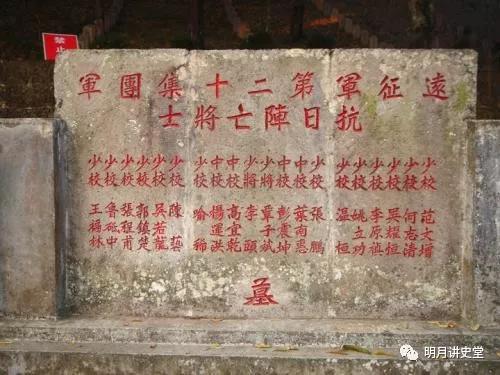 遠征軍第二十集團軍
抗日陣亡將士
少校 范文增
少校 何志清
少校 吳耀恒
少校 李原
少校 姚立功
少校 溫恒
少校 張鵬
中校 葉南惠
中校 彭震坤
少將 覃子斌
少將 李頤
中校 高宜乾
中校 楊運洪
少校 喻稀
少校 陳藝
少校 吳若龍
少校 郭鎮楚
少校 張程甫
少校 魯砥中
少校 王福林
墓
禁止
明月讲史堂